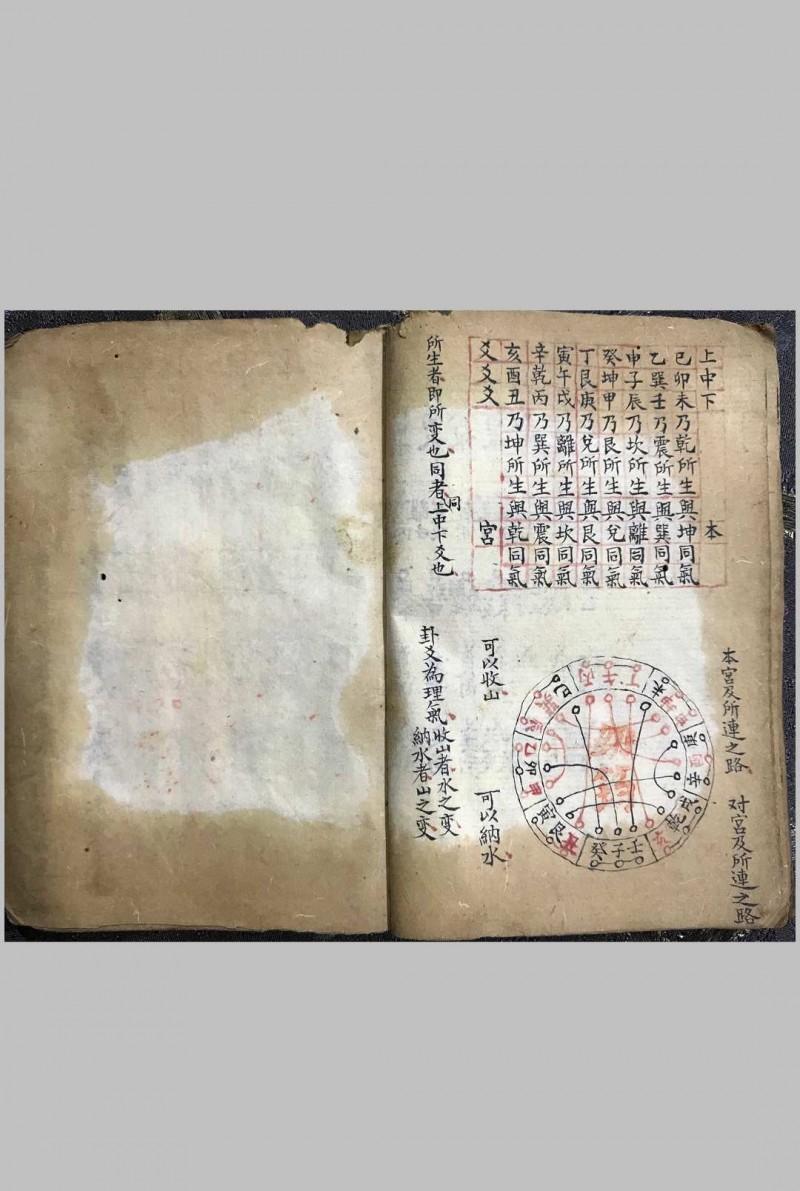 上中下 本
巳卯未乃乾所生與坤同氣
乙巽壬乃震所生與巽同氣
申子辰乃坎所生與離同氣
癸坤甲乃艮所生與兌同氣
丁艮庚乃兌所生與艮同氣
寅午戌乃離所生與坎同氣
辛乾丙乃巽所生與震同氣
亥酉丑乃坤所生與乾同氣
爻爻爻 宮
所生者即所变也同者上中下爻也
同
本宮及所連之路
对宮及所連之路
可以收山
可以納水
卦爻為理氣
收山者水之变
納水者山之变
丙
午
丁
未
庚
辛
戌
乾
亥
壬
子
癸
寅
卯
乙
巳